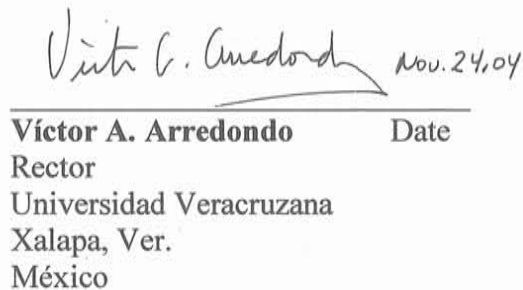 Victor A. Arredondo Nov. 24,04
Víctor A. Arredondo Date
Rector
Universidad Veracruzana
Xalapa, Ver.
México